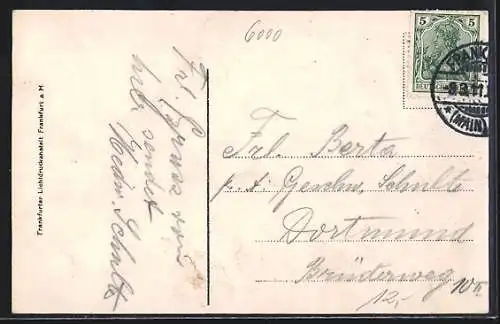 6000
Frankfurter Lichtdruckanstalt Frankfurt a. M.
Frl. Gruss und
sendet
Hedw. Schultz
5 5
DEUTSCHES
FRANK
9.9.11.
*(MAIN)
Frl. Berta
p. A. Geschw. Schulte
Dortmund
Brüderweg
12,- 10 II